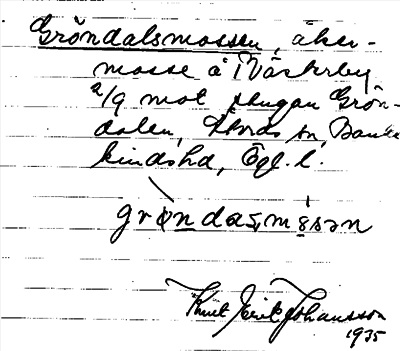 Gröndalsmossen, åker-
mosse å Västerby
2/9 mot stugan Grön-
dalen, sn, Bank
kindshd, Ögl.
gröndasmosən
Knut Erik Johansson
1935